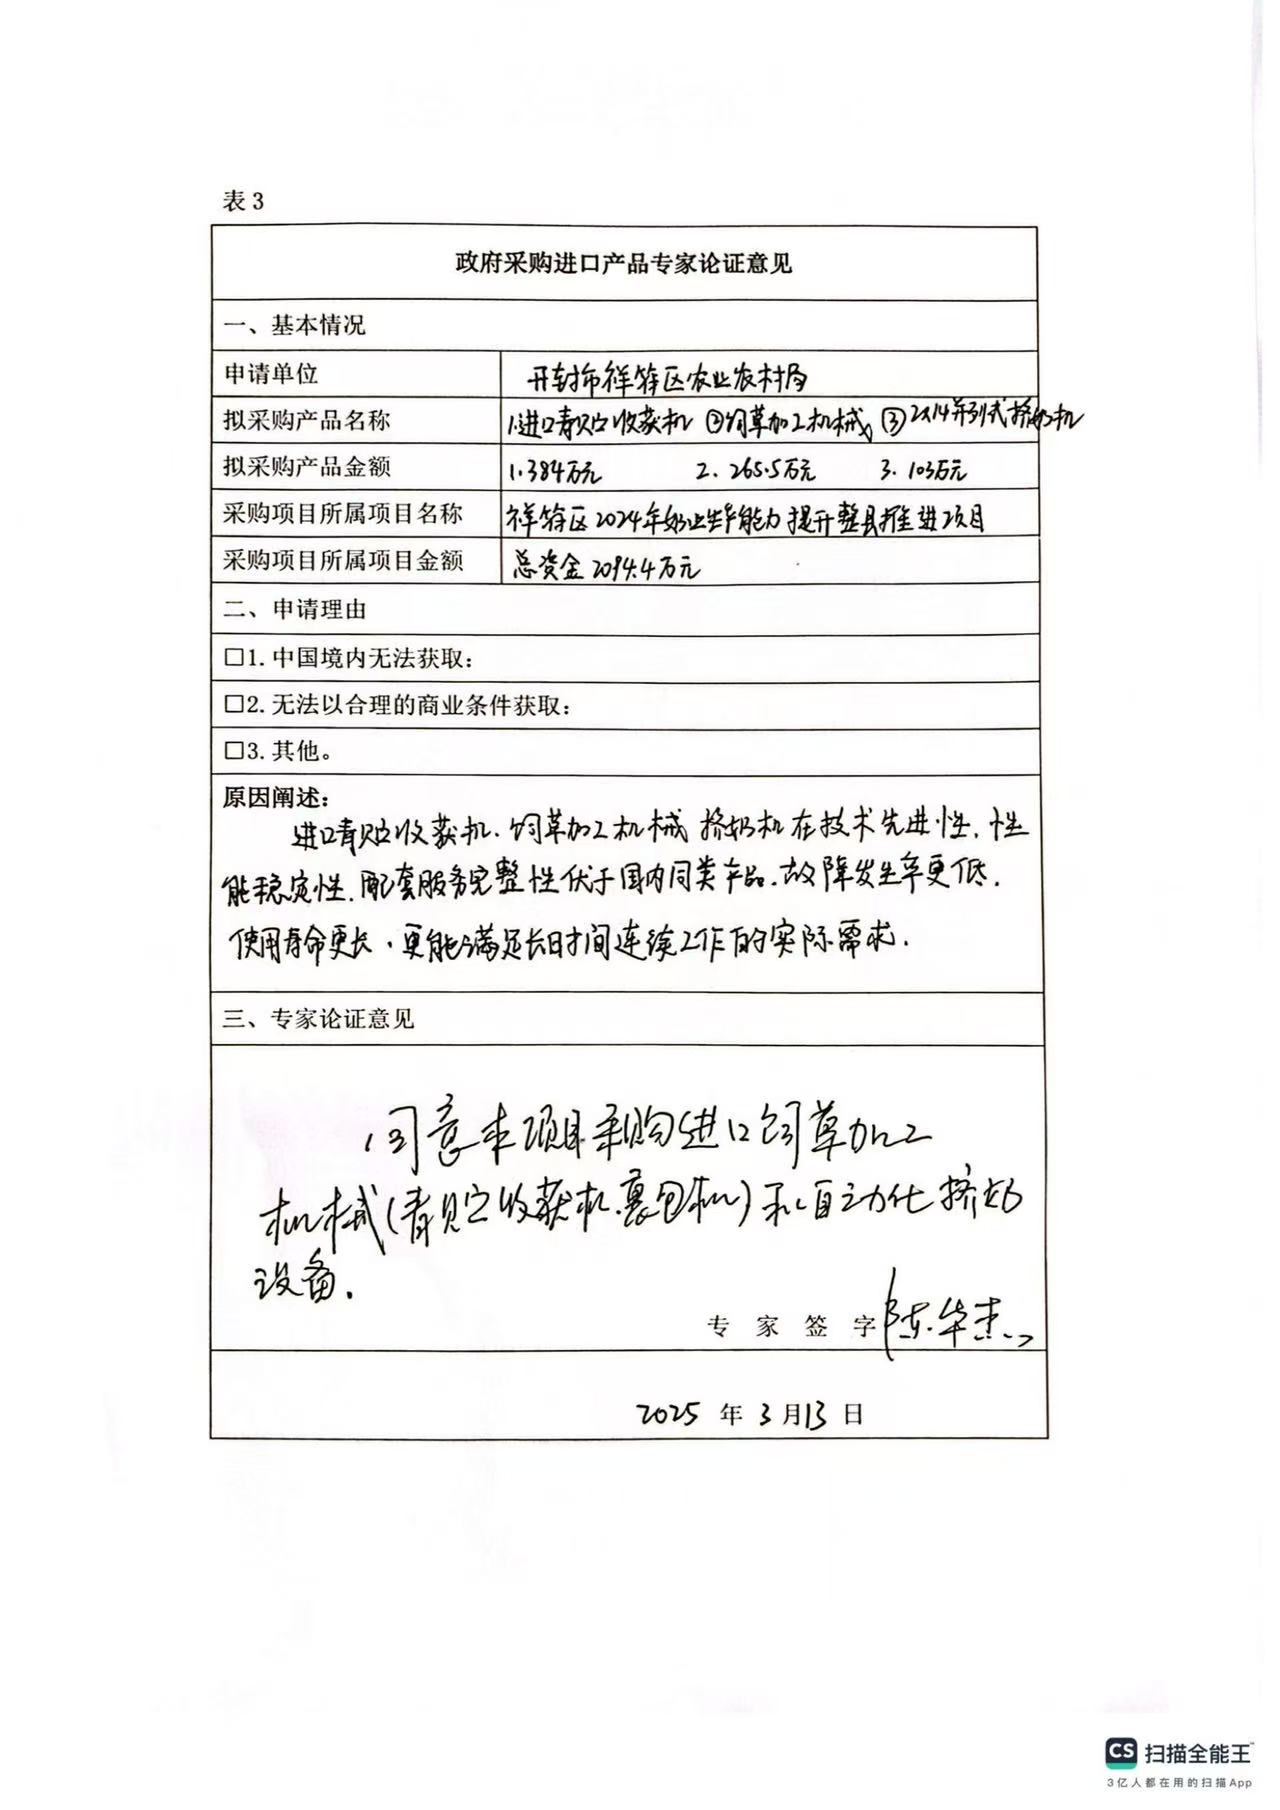 表3
政府采购进口产品专家论证意见
一、基本情况
申请单位 开封市祥符区农业农村局
拟采购产品名称 1.进口青贮收获机 ②饲草加工机械 ③2×14并列式挤奶机
拟采购产品金额 1.384万元 2.265.5万元 3.103万元
采购项目所属项目名称 祥符区2024年奶业生产能力提升整县推进项目
采购项目所属项目金额 总资金2094.4万元
二、申请理由
□1.中国境内无法获取:
□2.无法以合理的商业条件获取:
□3.其他。
原因阐述:
进口青贮收获机.饲草加工机械 挤奶机在技术先进性.性
能稳定性.配套服务完整性优于国内同类产品.故障发生率更低.
使用寿命更长.更能满足长时间连续工作的实际需求.
三、专家论证意见
同意本项目采购进口饲草加工
机械(青贮收获机.裹包机)和自动化挤奶
设备.
专家签字 陈华杰
2025年3月13日
CS 扫描全能王
3亿人都在用的扫描App